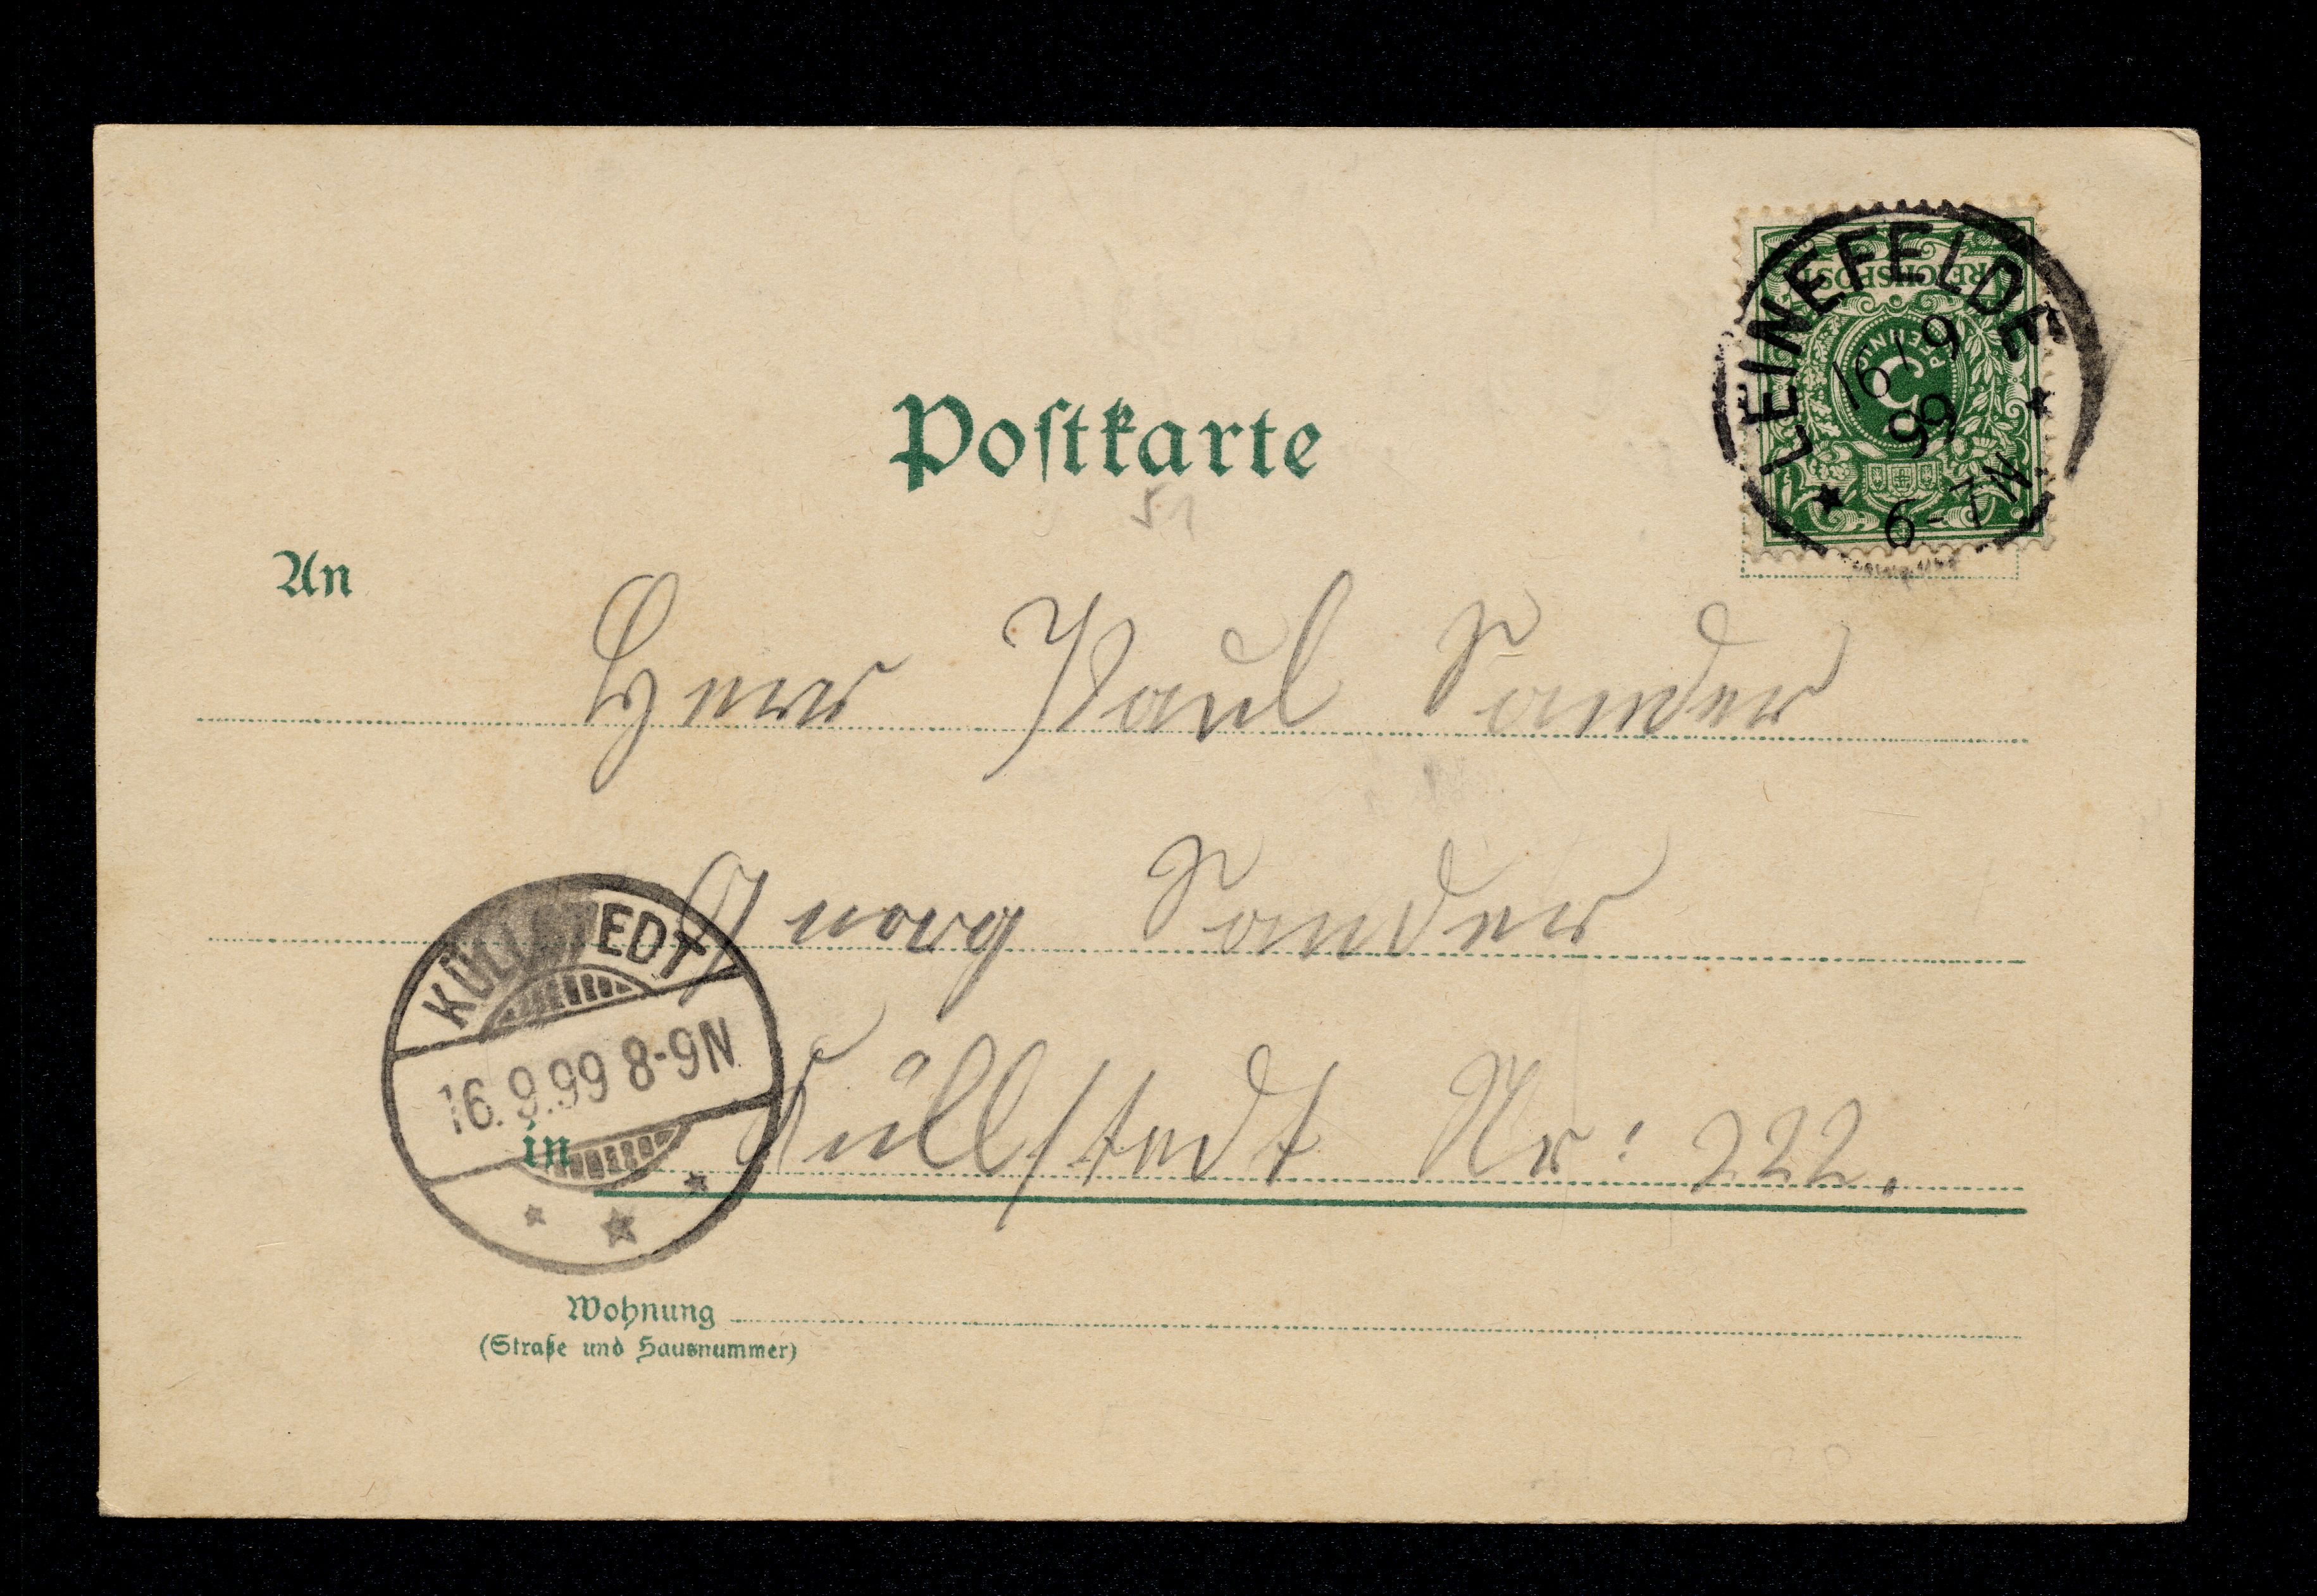 REICHSPOST
5
PFENNIG
LEINEFELDE
16/9
99
6-7N.
Postkarte
51
An
Herrn Paul Sander
Georg Sander
KÜLLSTEDT
16.9.99 8-9N.
in Küllstedt Nr: 222.
Wohnung
(Straße und Hausnummer)